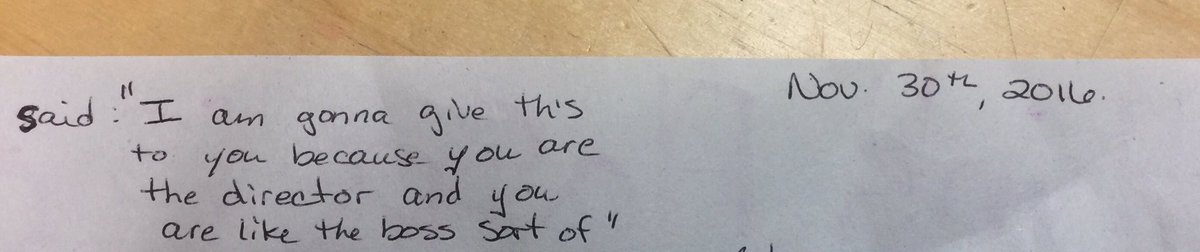 Nov. 30th, 2016.
said: "I am gonna give this
to you because you are
the director and you
are like the boss sort of"